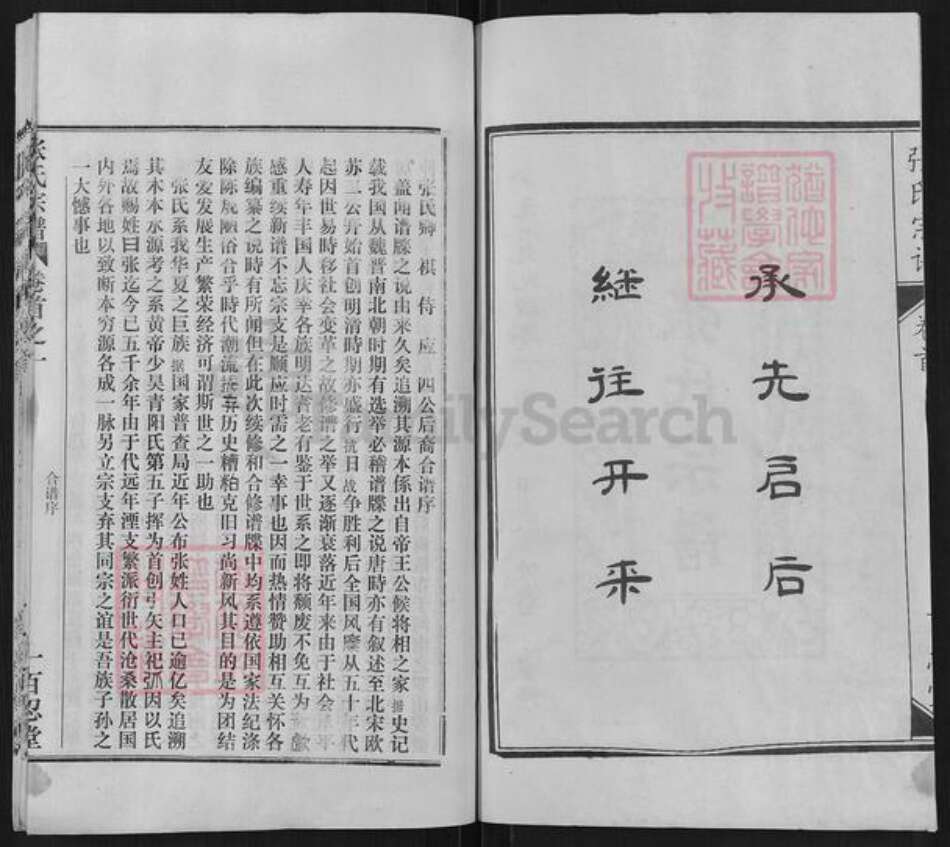 张氏宗谱
卷首
承先启后
继往开来
犹他家谱学会收藏
张氏卿 棋 侍 应 四公后裔合谱序
盖闻谱牒之说由来久矣追溯其源本係出自帝王公候将相之家据史记
载我国从魏晋南北朝时期有选举必稽谱牒之说唐時亦有叙述至北宋欧
苏二公开始首创明清時期亦盛行抗日战争胜利后全国风靡从五十年代
起因世易時移社会变革之故修谱之举又逐渐衰落近年来由于社会
人寿年丰国人庆幸各族明达耆老有鉴于世系之即将颓废不免互为
感重续新谱不忘宗支是顺应时需之一幸事也因而热情赞助相互关怀各
族编纂之说時有所闻但在此次续修和合修谱牒中均系遵依国家法纪涤
除陈规陋俗合乎時代潮流摈弃历史糟粕克旧习尚新风其目的是为团结
友爱发展生产繁荣经济可谓斯世之一助也
张氏系我华夏之巨族据国家普查局近年公布张姓人口已逾亿矣追溯
其木本水源考之系黄帝少昊青阳氏第五子挥为首创弓矢主祀弧因以氏
焉故赐姓曰张迄今已五千余年由于代远年湮支繁派衍世代沧桑散居国
内外各地以致断本穷源各成一脉另立宗支弃其同宗之谊是吾族子孙之
一大憾事也
张氏宗谱
卷首之一
合谱序
一
百忍堂
FamilySearch